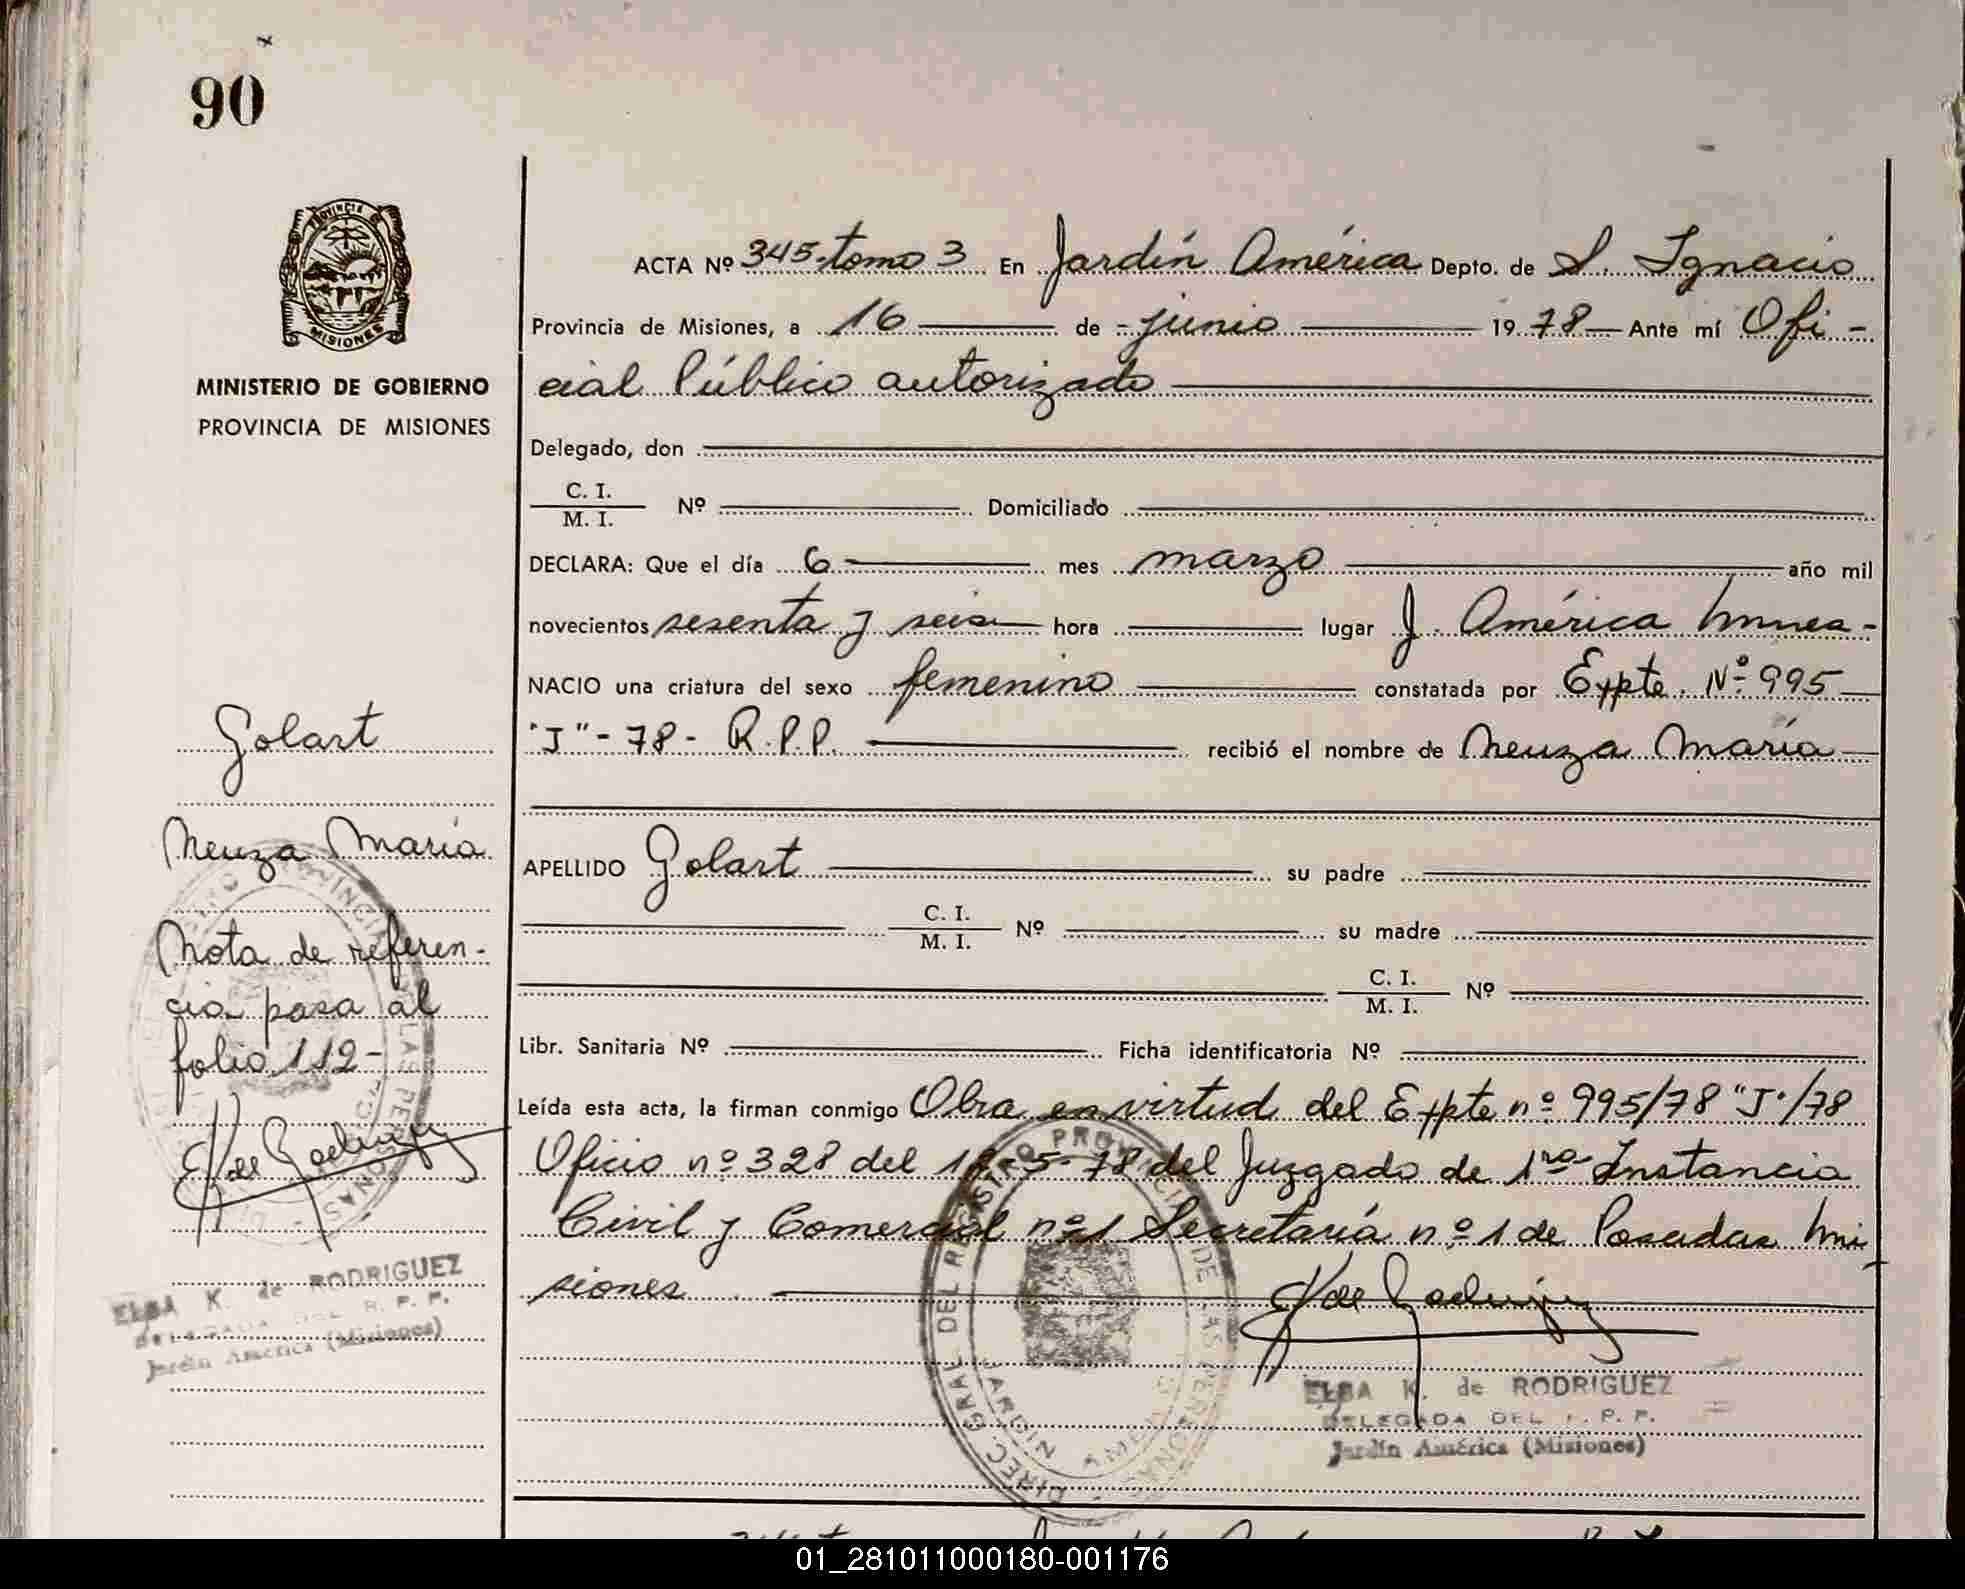 90
PROVINCIA DE
MISIONES
MINISTERIO DE GOBIERNO
PROVINCIA DE MISIONES
Golart
Neuza María
Nota de referen-
cia pasa al
folio 112-
K de Rodriguez
ELBA K. de RODRIGUEZ
DELEGADA DEL R. P. P.
Jardín América (Misiones)
ACTA Nº 345-tomo 3 En Jardín América Depto. de S. Ignacio
Provincia de Misiones, a 16 de junio 1978 Ante mí Ofi-
cial Público autorizado
Delegado, don
C. I.
M. I. Nº Domiciliado
DECLARA: Que el día 6 mes marzo año mil
novecientos sesenta y seis hora lugar J. América
NACIO una criatura del sexo femenino constatada por Expte. Nº 995
"J"-78- R.P.P. recibió el nombre de Neuza María
APELLIDO Golart su padre
C. I.
M. I. Nº su madre
C. I.
M. I. Nº
Libr. Sanitaria Nº Ficha identificatoria Nº
Leída esta acta, la firman conmigo Obra en virtud del Expte nº 995/78 "J"/78
Oficio nº 328 del 5-78 del Juzgado de 1ra Instancia
Civil y Comercial nº 1 Secretaría nº 1 de Posadas Mi
siones
K de Rodriguez
DIREC. GRAL. DEL REGISTRO PROVINCIAL DE LAS PERSONAS
JARDIN AMERICA
ELBA K. de RODRIGUEZ
DELEGADA DEL R. P. P.
Jardín América (Misiones)
01_281011000180-001176